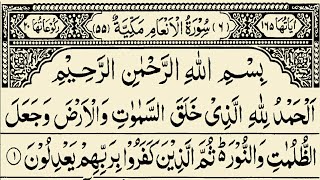 اٰیَاتُهَا ١٦٥ (٦) سُوْرَةُ الْاَنْعَامِ مَكِّیَّةٌ (٥٥) رُكُوْعَاتُهَا ٢٠
بِسْمِ اللّٰهِ الرَّحْمٰنِ الرَّحِیْمِ
اَلْحَمْدُ لِلّٰهِ الَّذِیْ خَلَقَ السَّمٰوٰتِ وَالْاَرْضَ وَجَعَلَ
الظُّلُمٰتِ وَالنُّوْرَ ؕ ثُمَّ الَّذِیْنَ كَفَرُوْا بِرَبِّهِمْ یَعْدِلُوْنَ ١